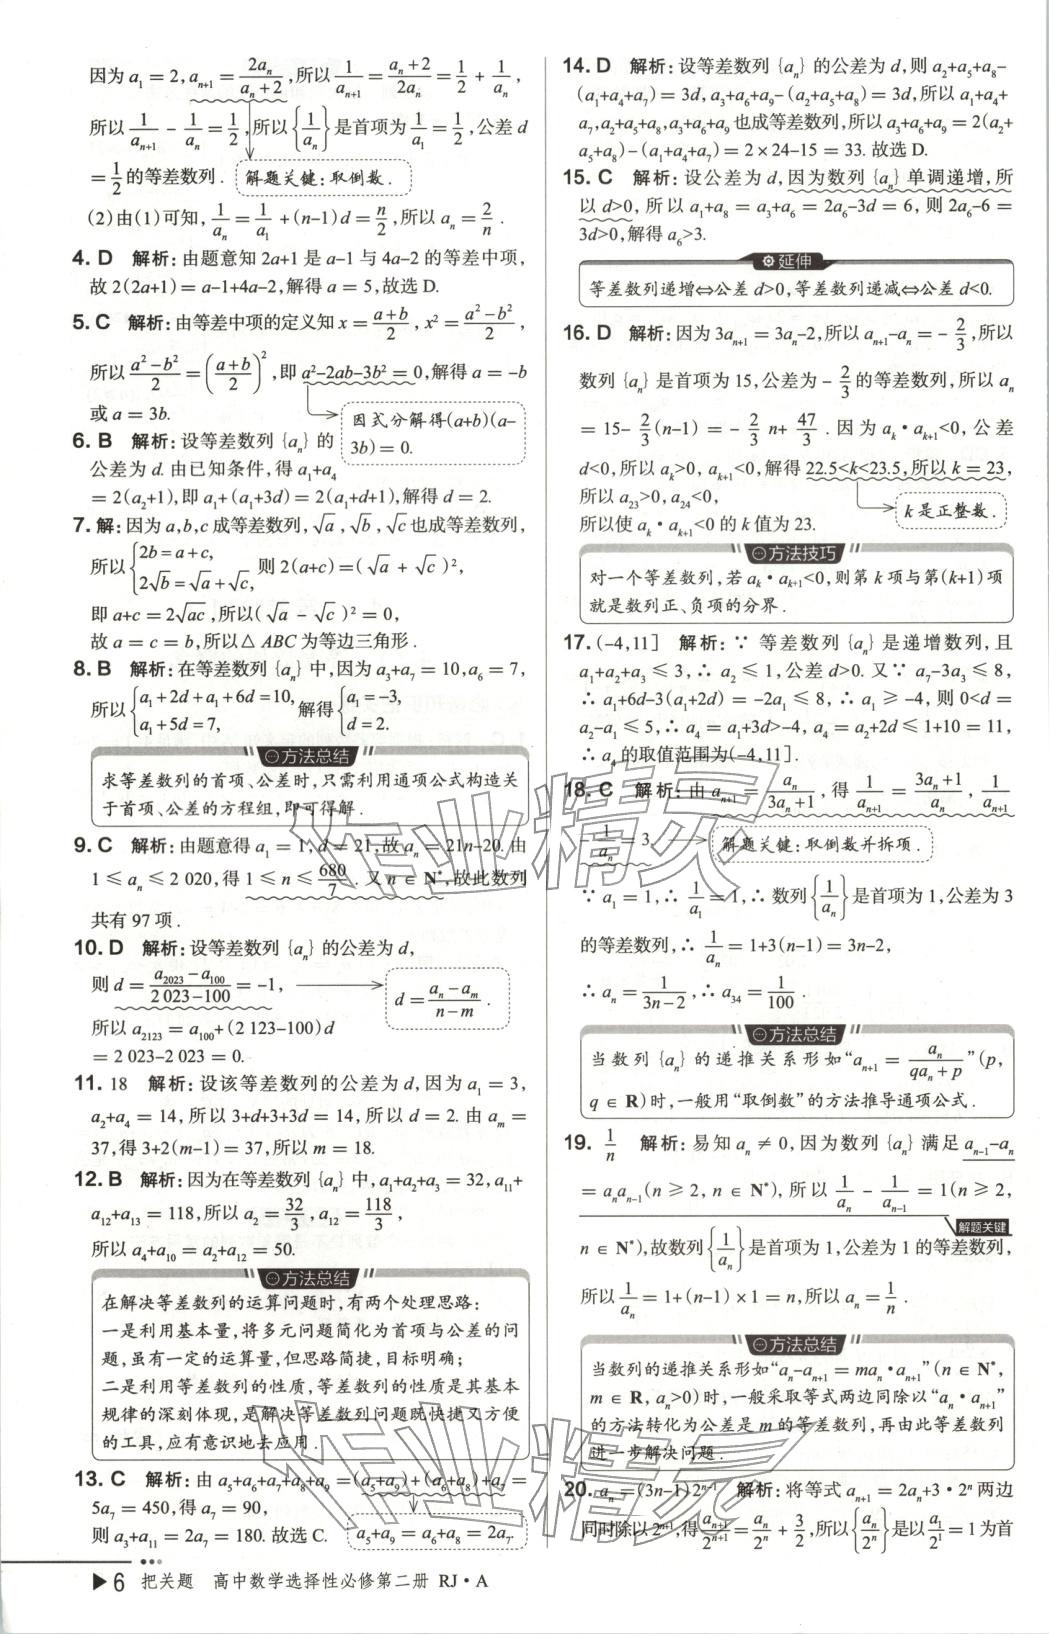 因为 a₁ = 2, aₙ₊₁ = 2aₙ/(aₙ+2), 所以 1/aₙ₊₁ = (aₙ+2)/2aₙ = 1/2 + 1/aₙ,
所以 1/aₙ₊₁ - 1/aₙ = 1/2, 所以{1/aₙ}是首项为 1/a₁ = 1/2, 公差 d
= 1/2 的等差数列. 解题关键:取倒数.
(2)由(1)可知, 1/aₙ = 1/a₁ + (n-1)d = n/2, 所以 aₙ = 2/n.
4. D 解析:由题意知 2a+1 是 a-1 与 4a-2 的等差中项,
故 2(2a+1) = a-1+4a-2,解得 a = 5,故选D.
5. C 解析:由等差中项的定义知 x = (a+b)/2, x² = (a²-b²)/2,
所以 (a²-b²)/2 = ((a+b)/2)², 即 a²-2ab-3b² = 0,解得 a = -b
或 a = 3b.
因式分解得(a+b)(a-
3b) = 0.
6. B 解析:设等差数列 {aₙ} 的
公差为 d. 由已知条件,得 a₁+a₄
= 2(a₂+1),即 a₁+(a₁+3d) = 2(a₁+d+1),解得 d = 2.
7. 解:因为 a,b,c 成等差数列, √a, √b, √c 也成等差数列,
所以 {2b = a+c, 2√b = √a+√c, 则 2(a+c) = (√a + √c)²,
即 a+c = 2√ac, 所以(√a - √c)² = 0,
故 a = c = b,所以△ABC 为等边三角形.
8. B 解析:在等差数列 {aₙ} 中,因为 a₃+a₇ = 10,a₆ = 7,
所以 {a₁+2d+a₁+6d = 10, a₁+5d = 7, 解得 {a₁ = -3, d = 2.
方法总结
求等差数列的首项、公差时,只需利用通项公式构造关
于首项、公差的方程组,即可得解.
9. C 解析:由题意得 a₁ = 1,d = 21,故 aₙ = 21n-20. 由
1 ≤ aₙ ≤ 2 020,得 1 ≤ n ≤ 680/7. 又 n ∈ N*,故此数列
共有 97 项.
10. D 解析:设等差数列 {aₙ} 的公差为 d,
则 d = (a₂₀₂₃-a₁₀₀)/(2 023-100) = -1, d = (aₙ-aₘ)/(n-m).
所以 a₂₁₂₃ = a₁₀₀+(2 123-100)d
= 2 023-2 023 = 0.
11. 18 解析:设该等差数列的公差为 d,因为 a₁ = 3,
a₂+a₄ = 14,所以 3+d+3+3d = 14,所以 d = 2. 由 aₘ =
37,得 3+2(m-1) = 37,所以 m = 18.
12. B 解析:因为在等差数列 {aₙ} 中,a₁+a₂+a₃ = 32,a₁₁+
a₁₂+a₁₃ = 118,所以 a₂ = 32/3, a₁₂ = 118/3,
所以 a₄+a₁₀ = a₂+a₁₂ = 50.
方法总结
在解决等差数列的运算问题时,有两个处理思路:
一是利用基本量,将多元问题简化为首项与公差的问
题,虽有一定的运算量,但思路简捷,目标明确;
二是利用等差数列的性质,等差数列的性质是其基本
规律的深刻体现,是解决等差数列问题既快捷又方便
的工具,应有意识地去应用.
13. C 解析:由 a₅+a₆+a₇+a₈+a₉ = (a₅+a₉)+(a₆+a₈)+a₇ =
5a₇ = 450,得 a₇ = 90,
则 a₃+a₁₁ = 2a₇ = 180. 故选 C. a₅+a₉ = a₆+a₈ = 2a₇.
6 把关题 高中数学选择性必修第二册 RJ·A
14. D 解析:设等差数列 {aₙ} 的公差为 d,则 a₂+a₅+a₈-
(a₁+a₄+a₇) = 3d,a₃+a₆+a₉-(a₂+a₅+a₈) = 3d,所以 a₁+a₄+
a₇,a₂+a₅+a₈,a₃+a₆+a₉ 也成等差数列,所以 a₃+a₆+a₉ = 2(a₂+
a₅+a₈)-(a₁+a₄+a₇) = 2×24-15 = 33. 故选 D.
15. C 解析:设公差为 d,因为数列 {aₙ} 单调递增,所
以 d>0,所以 a₁+a₈ = a₃+a₆ = 2a₆-3d = 6,则 2a₆-6 =
3d>0,解得 a₆>3.
延伸
等差数列递增⇔公差 d>0,等差数列递减⇔公差 d<0.
16. D 解析:因为 3aₙ₊₁ = 3aₙ-2,所以 aₙ₊₁-aₙ = -2/3,所以
数列 {aₙ} 是首项为 15,公差为 -2/3 的等差数列,所以 aₙ
= 15-2/3(n-1) = -2/3 n+47/3. 因为 aₖ·aₖ₊₁<0,公差
d<0,所以 aₖ>0,aₖ₊₁<0,解得 22.5<k<23.5,所以 k = 23,
所以 a₂₃>0,a₂₄<0, k 是正整数.
所以使 aₖ·aₖ₊₁<0 的 k 值为 23.
方法技巧
对一个等差数列,若 aₖ·aₖ₊₁<0,则第 k 项与第(k+1)项
就是数列正、负项的分界.
17. (-4,11] 解析:∵ 等差数列 {aₙ} 是递增数列,且
a₁+a₂+a₃ ≤ 3,∴ a₂ ≤ 1,公差 d>0. 又∵ a₇-3a₃ ≤ 8,
∴ a₁+6d-3(a₁+2d) = -2a₁ ≤ 8,∴ a₁ ≥ -4,则 0<d =
a₂-a₁ ≤ 5,∴ a₄ = a₁+3d>-4,a₄ = a₂+2d ≤ 1+10 = 11,
∴ a₄ 的取值范围为(-4,11].
18. C 解析:由 aₙ₊₁ = aₙ/(3aₙ+1), 得 1/aₙ₊₁ = (3aₙ+1)/aₙ, 1/aₙ₊₁
- 1/aₙ = 3, 解题关键:取倒数并拆项.
∵ a₁ = 1,∴ 1/a₁ = 1,∴ 数列{1/aₙ}是首项为 1,公差为 3
的等差数列,∴ 1/aₙ = 1+3(n-1) = 3n-2,
∴ aₙ = 1/(3n-2), ∴ a₃₄ = 1/100.
方法总结
当数列 {aₙ} 的递推关系形如“aₙ₊₁ = aₙ/(qaₙ+p)”(p,
q ∈ R)时,一般用“取倒数”的方法推导通项公式.
19. 1/n 解析:易知 aₙ ≠ 0,因为数列 {aₙ} 满足 aₙ₋₁-aₙ
= aₙaₙ₋₁(n ≥ 2, n ∈ N*),所以 1/aₙ - 1/aₙ₋₁ = 1(n ≥ 2,
解题关键
n ∈ N*),故数列{1/aₙ}是首项为 1,公差为 1 的等差数列,
所以 1/aₙ = 1+(n-1)×1 = n,所以 aₙ = 1/n.
方法总结
当数列的递推关系形如“aₙ-aₙ₊₁ = maₙ·aₙ₊₁”(n ∈ N*,
m ∈ R,aₙ>0)时,一般采取等式两边同除以“aₙ·aₙ₊₁”
的方法转化为公差是 m 的等差数列,再由此等差数列
进一步解决问题.
20. aₙ = (3n-1)2ⁿ⁻¹ 解析:将等式 aₙ₊₁ = 2aₙ+3·2ⁿ 两边
同时除以 2ⁿ⁺¹,得 aₙ₊₁/2ⁿ⁺¹ = aₙ/2ⁿ + 3/2, 所以{aₙ/2ⁿ}是以 a₁/2 = 1 为首
作业精灵
作业精灵